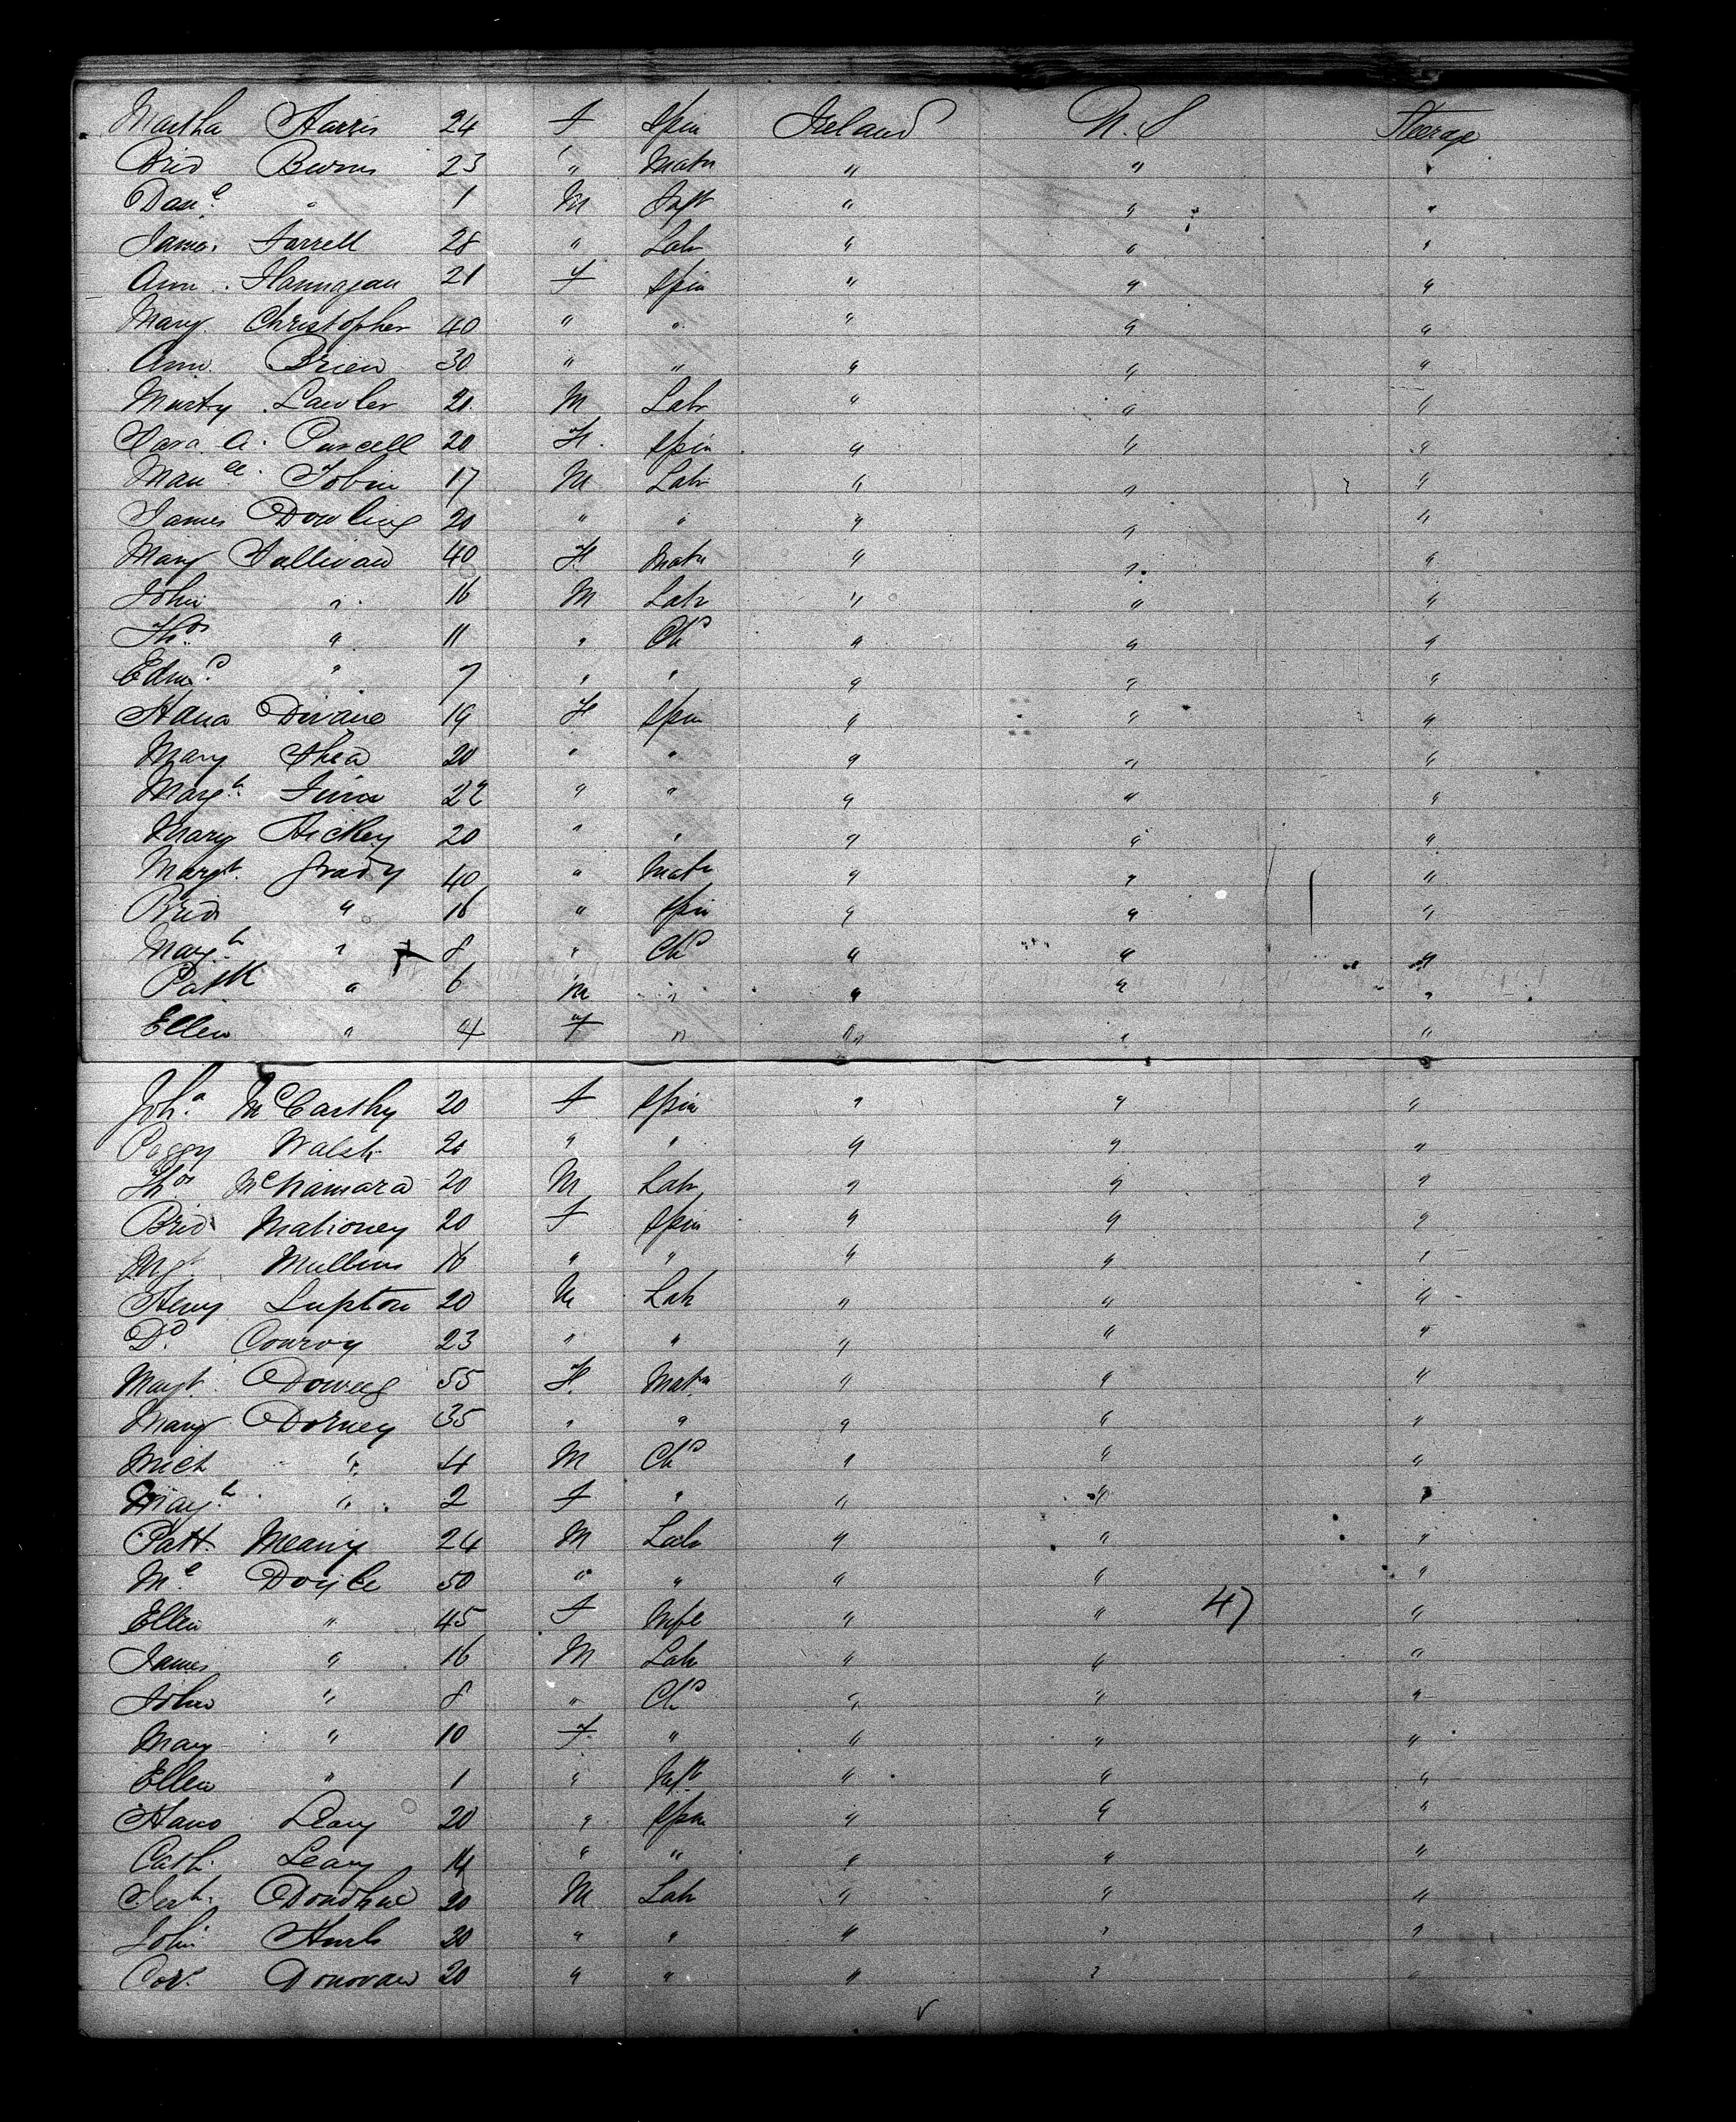 Martha Harris 24 F Spin Ireland U.S Steerage
Brid Burns 23 " Matn " " "
Danl " 1 M Inft " " "
James Farrell 28 " Labr " " "
Ann Flannagan 21 F Spin " " "
Mary Christopher 40 " " " " "
Ann Brien 30 " " " " "
Murty Lawler 21 M Labr " " "
Sara A. Purcell 20 F Spin " " "
Tobin 17 M Labr " " "
James Dowling 20 " " " " "
Mary Sullivan 40 F Matn " " "
John " 16 M Labr " " "
Thos " 11 " Chd " " "
Edmd " 7 " " " " "
Hana Divane 19 F Spin " " "
Mary Shea 20 " " " " "
Margt 22 " " " " "
Mary Hickey 20 " " " " "
Margt. Grady 40 " Matn " " "
Brid " 16 " Spin " " "
Margt " 8 " Chd " " "
Patk " 6 M " " " "
Ellen " 4 F " " " "
Joha McCarthy 20 F Spin " " "
Peggy Walsh 20 " " " " "
Thos McNamara 20 M Labr " " "
Brid Mahoney 20 F Spin " " "
Mgt Mullins 16 " " " " "
Henry Lupton 20 M Lab " " "
Dd Conroy 23 " " " " "
Margt. 55 F. Matn " " "
Mary Dorney 35 " " " " "
Mich " 4 M Chd " " "
Margt " 2 F " " " "
Patt. 24 M Labr " " "
Ml Doyle 50 " " " " "
Ellen " 45 F Wife " " 47 "
James " 16 M Labr " " "
John " 8 " Chd " " "
Mary " 10 F " " " "
Ellen " 1 " Inft " " "
Hano Leary 20 " Spin " " "
Cath. Leary 14 " " " " "
Donohue 20 M Labr " " "
John 20 " " " " "
Cors Donovan 20 " " " " "